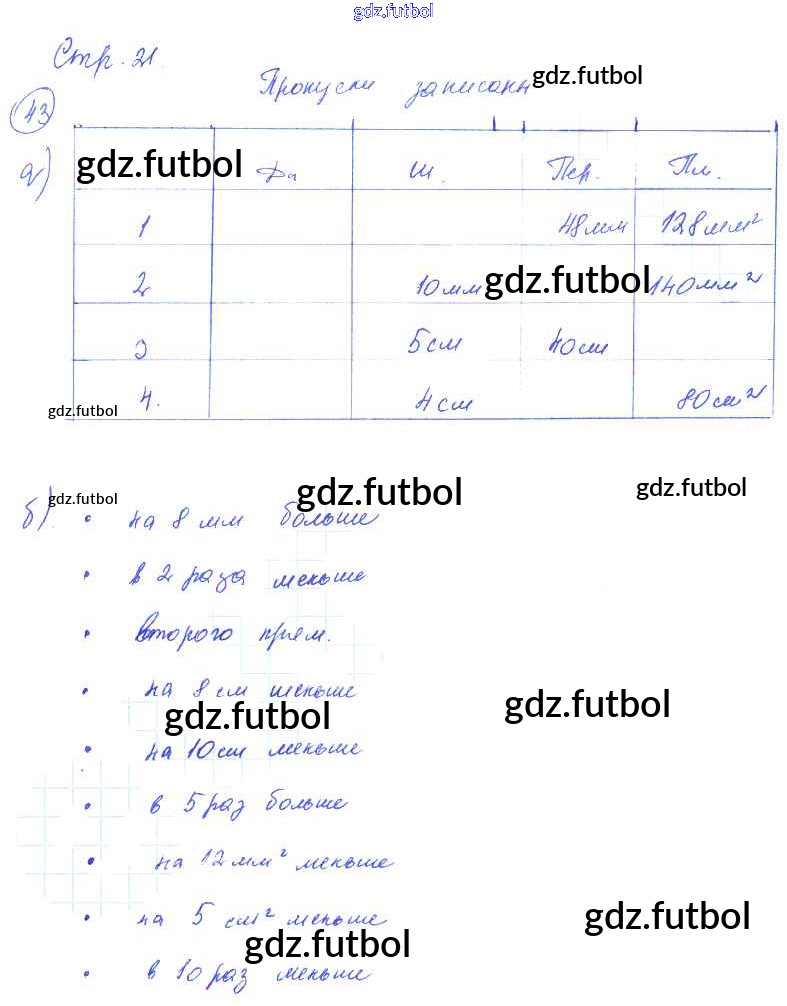 gdz.futbol
Стр. 21.
Пропуски записаны gdz.futbol
43
а) gdz.futbol Дл Ш. Пер. Пл.
1 48мм 128мм²
2 10мм gdz.futbol 140мм²
3 5см 40см
4. 4см 80см²
gdz.futbol
gdz.futbol gdz.futbol gdz.futbol
б). • на 8 мм больше
• в 2 раза меньше
• второго прям.
• на 8 см меньше
gdz.futbol gdz.futbol
• на 10см меньше
• в 5 раз больше
• на 12мм² меньше
• на 5 см² меньше gdz.futbol
gdz.futbol
• в 10 раз меньше